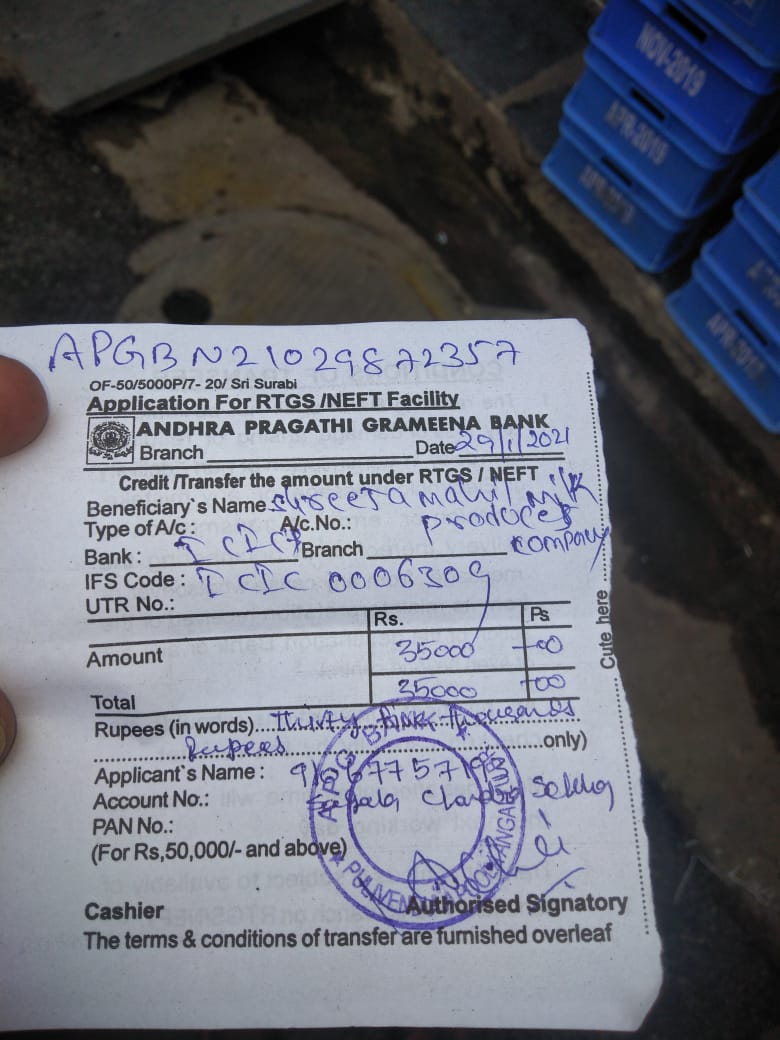 APGBN21029872357
OF-50/5000P/7- 20/ Sri Surabi
Application For RTGS /NEFT Facility
ANDHRA PRAGATHI GRAMEENA BANK
Branch Date 29/1/2021
Credit /Transfer the amount under RTGS / NEFT
Beneficiary`s Name shreeja mahil milk
Type of A/c : A/c.No.: producer
Bank : ICICI Branch company
IFS Code : ICIC 0006309
UTR No.:
Rs. Ps
Amount 35000 -00
Total 35000 -00
Rupees (in words) thirty five thousands
Rupees only)
Applicant`s Name :
Account No.: Sekhar
PAN No.:
(For Rs,50,000/- and above)
Cashier Authorised Signatory
The terms & conditions of transfer are furnished overleaf
Cute here
APG BANK
NOV-2019
APR-2019